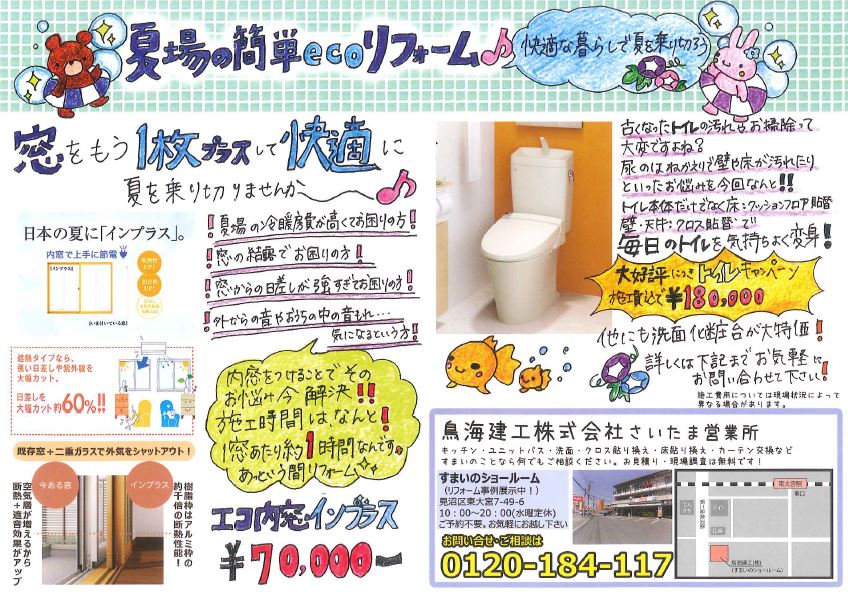 夏場の簡単ecoリフォーム♪
快適な暮らしで夏を乗り切ろう
窓をもう1枚プラスして快適に
夏を乗り切りませんか〜♪
日本の夏に「インプラス」。
内窓で上手に節電
【インプラス】
断熱性UP!
【いま付いている窓】
!夏場の冷暖房費が高くてお困りの方!
!窓の結露でお困りの方!
!窓からの日差しが強すぎてお困りの方!
!外からの音やおうちの中の音もれ…
気になるという方!
遮熱タイプなら、
強い日差しや紫外線を
大幅カット。
日差しを
大幅カット約60%!!
内窓をつけることでその
お悩み今解決!!
施工時間は、なんと!
1窓あたり約1時間なんです。
あっという間リフォーム
既存窓+二重ガラスで外気をシャットアウト!
今ある窓
インプラス
空気層が増えるから
断熱+遮音効果がアップ
樹脂枠はアルミ枠の
約千倍の断熱性能!
エコ内窓インプラス
¥70,000〜
古くなったトイレの汚れもお掃除って
大変ですよね?
尿のはねかえりで壁や床が汚れたり
といったお悩みを今回なんと!!
トイレ本体だけでなく床:クッションフロア貼替
壁・天井:クロス貼替で
毎日のトイレを気持ちよく変身!
大好評につきトイレキャンペーン
施工費込で¥180,000
他にも洗面化粧台が大特価!
詳しくは下記までお気軽に
お問い合わせて下さい!
施工費用については現場状況によって
異なる場合があります。
鳥海建工株式会社さいたま営業所
キッチン・ユニットバス・洗面・クロス貼り換え・床貼り換え・カーテン交換など
すまいのことなら何でもご相談ください。お見積り・現場調査は無料です!
すまいのショールーム
(リフォーム事例展示中!)
見沼区東大宮7-49-6
10:00〜20:00(水曜定休)
ご予約不要。お気軽にお越し下さい
お問い合せ・ご相談は
0120-184-117
東大宮駅
東口
鳥海建工(株)
(すまいのショールーム)